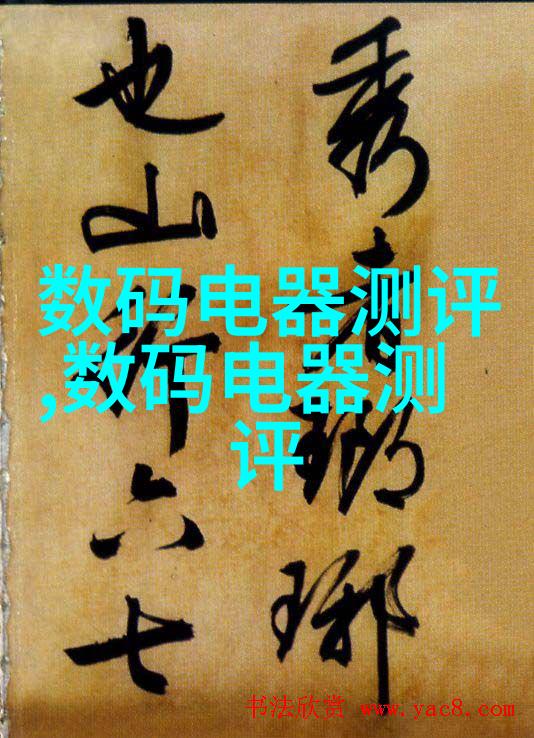 秀者瑯琊
也山行六七
数码电器测评
,数码电器测
评
书法欣赏 www.yac8.com